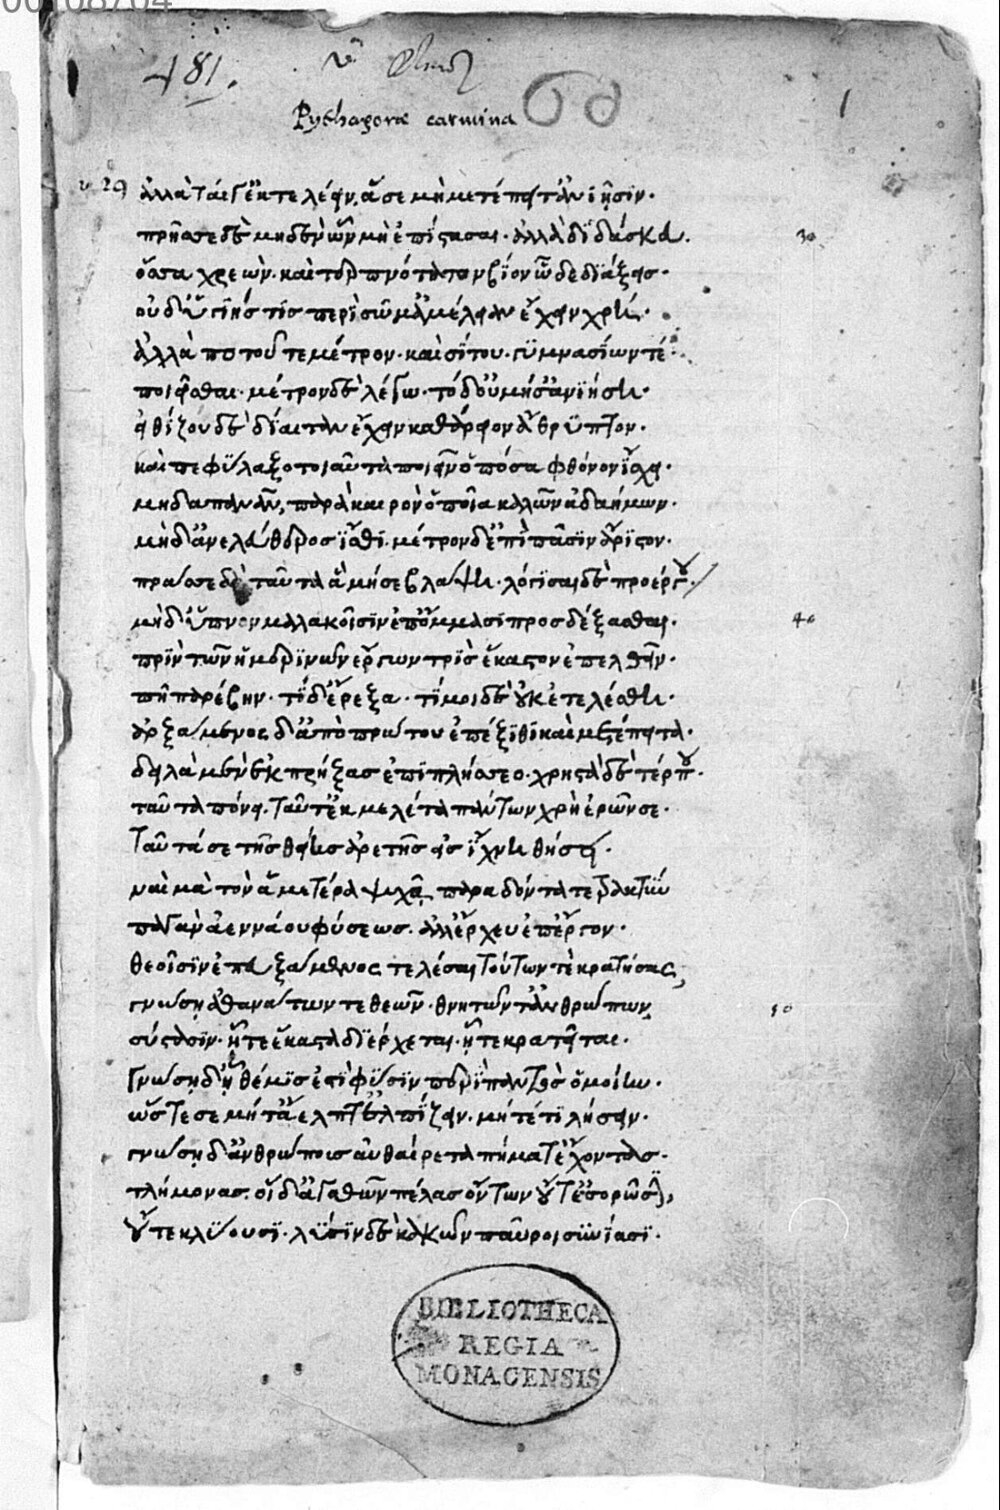 00108704
481.
Pythagoræ carmina
1
v 29 ἀλλὰ τάδ' ἐκτελέειν, ἅ σε μὴ μετέπειτ' ἀνιήσῃ.
πρῆσσε δὲ μηδὲν ὧν μὴ ἐπίστασαι. ἀλλὰ διδάσκευ. 30
ὅσσα χρεών. καὶ τερπνότατον βίον ὧδε διάξεις.
οὐδ' ὑγιείης τῆς περὶ σῶμ' ἀμέλειαν ἔχειν χρή.
ἀλλὰ ποτοῦ τε μέτρον. καὶ σίτου. γυμνασίων τέ.
ποιεῖσθαι. μέτρον δὲ λέγω. τόδ' οὗ μή σ' ἀνιήσῃ.
εἰθίζου δὲ δίαιταν ἔχειν καθάρειον ἄθρυπτον.
καὶ πεφύλαξο τοιαῦτα ποιεῖν ὁπόσα φθόνον ἴσχει.
μὴ δαπανᾶν, παρὰ καιρὸν ὁποῖα καλῶν ἀδαήμων.
μὴ δ' ἀνελεύθερος ἴσθι. μέτρον δ' ἐπὶ πᾶσιν ἄριστον.
πράσσε δὲ ταῦτα ἃ μή σε βλάψῃ. λόγισαι δὲ πρὸ ἔργου.
μὴ δ' ὕπνον μαλακοῖσιν ἐπ' ὄμμασι προσδέξασθαι. 40
πρὶν τῶν ἡμερινῶν ἔργων τρὶς ἕκαστον ἐπελθεῖν.
πῆ παρέβην. τί δ' ἔρεξα. τί μοι δὲ οὐκ ἐτελέσθη.
ἀρξάμενος δ' ἀπὸ πρώτου ἐπέξιθι καὶ μετέπειτα.
δειλὰ μὲν ἐκπρήξας ἐπιπλήσσεο. χρηστὰ δὲ τέρπου.
ταῦτα πόνει. ταῦτ' ἐκμελέτα τούτων χρὴ ἐρᾶν σε.
ταῦτά σε τῆς θείης ἀρετῆς εἰς ἴχνη θήσει.
ναὶ μὰ τὸν ἁμετέρᾳ ψυχᾷ παραδόντα τετρακτύν
παγὰν ἀεννάου φύσεως. ἀλλ' ἔρχευ ἐπ' ἔργον.
θεοῖσιν ἐπευξάμενος τελέσαι τούτων τὲ κρατήσας,
γνώσῃ ἀθανάτων τε θεῶν. θνητῶν τ' ἀνθρώπων 50
σύστασιν. ᾗ τε ἕκαστα διέρχεται. ᾗ τε κρατεῖται.
γνώσῃ δ' ᾗ θέμις ἐστὶ φύσιν περὶ παντὸς ὁμοίην.
ὥστε σε μήτ' ἄελπτ' ἐλπίζειν. μήτε τι λήθειν.
γνώσῃ δ' ἀνθρώποις αὐθαίρετα πήματ' ἔχοντας.
τλήμονας. οἵ δ' ἀγαθῶν πέλας ὄντων οὔτ' ἐσορῶσιν,
οὔτε κλύουσι. λύσιν δὲ κακῶν παῦροι συνίασι.
BIBLIOTHECA
REGIA
MONACENSIS